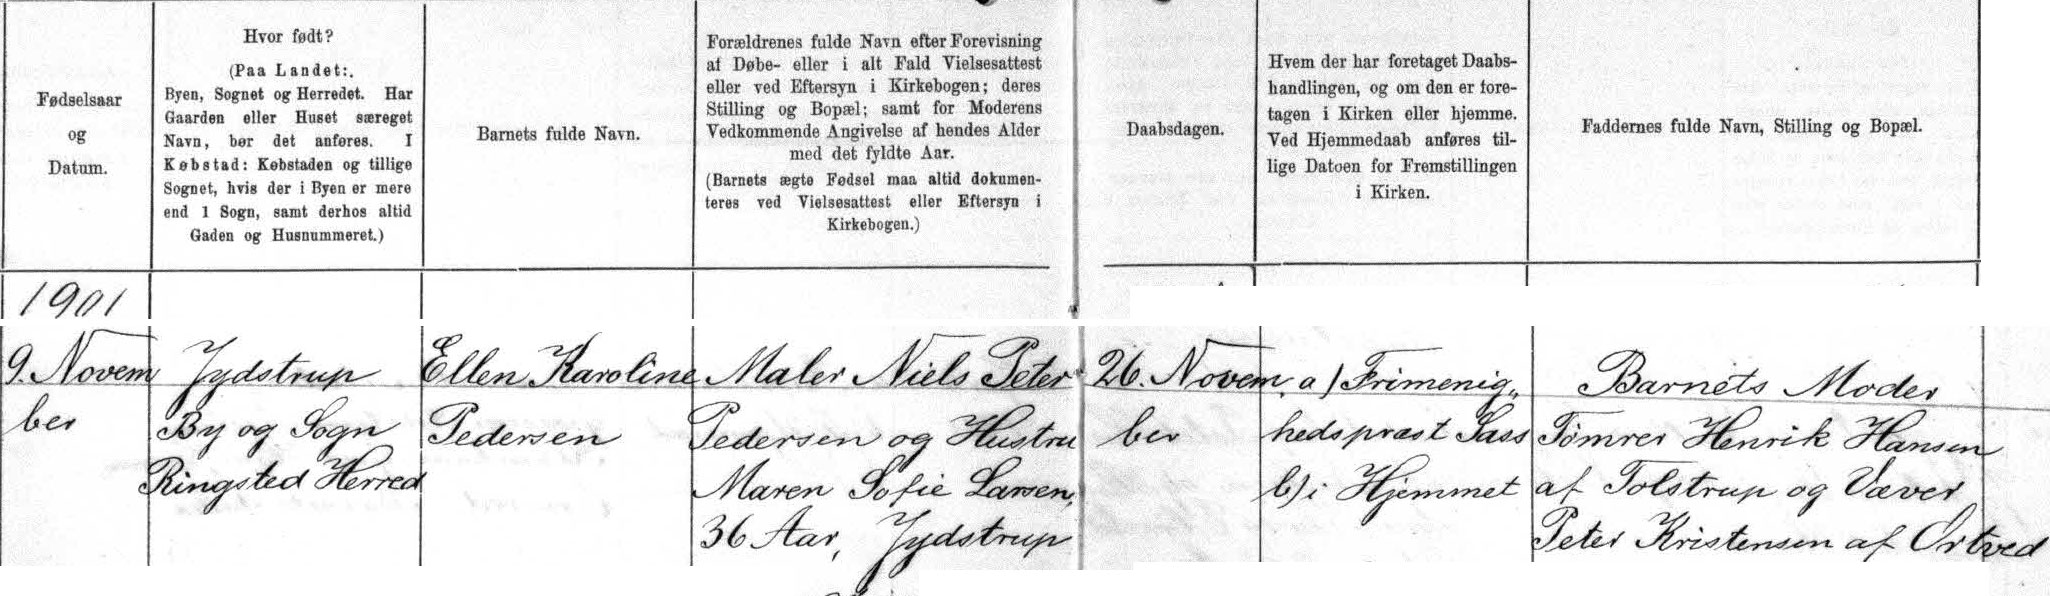 Fødselsaar
og
Datum.
Hvor født?
(Paa Landet:.
Byen, Sognet og Herredet. Har
Gaarden eller Huset særeget
Navn, bør det anføres. I
Købstad: Købstaden og tillige
Sognet, hvis der i Byen er mere
end 1 Sogn, samt derhos altid
Gaden og Husnummeret.)
Barnets fulde Navn.
Forældrenes fulde Navn efter Forevisning
af Døbe- eller i alt Fald Vielsesattest
eller ved Eftersyn i Kirkebogen; deres
Stilling og Bopæl; samt for Moderens
Vedkommende Angivelse af hendes Alder
med det fyldte Aar.
(Barnets ægte Fødsel maa altid dokumen-
teres ved Vielsesattest eller Eftersyn i
Kirkebogen.)
Daabsdagen.
Hvem der har foretaget Daabs-
handlingen, og om den er fore-
tagen i Kirken eller hjemme.
Ved Hjemmedaab anføres til-
lige Datoen for Fremstillingen
i Kirken.
Faddernes fulde Navn, Stilling og Bopæl.
1901
9. Novem
ber
Jydstrup
By og Sogn
Ringsted Herred
Ellen Karoline
Pedersen
Maler Niels Peter
Pedersen og Hustru
Maren Sofie Larsen,
36 Aar, Jydstrup
26. Novem
ber
a) Frimenig„
hedspræst Sass
b) i Hjemmet
Barnets Moder
Tömrer Henrik Hansen
af Tolstrup og Væver
Peter Kristensen af Ortved